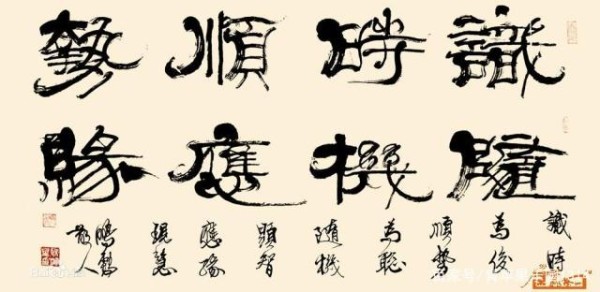 識時順勢
隨機應緣
識時
為俊
順勢
為聰
隨機
顯智
應緣
現慧
散人